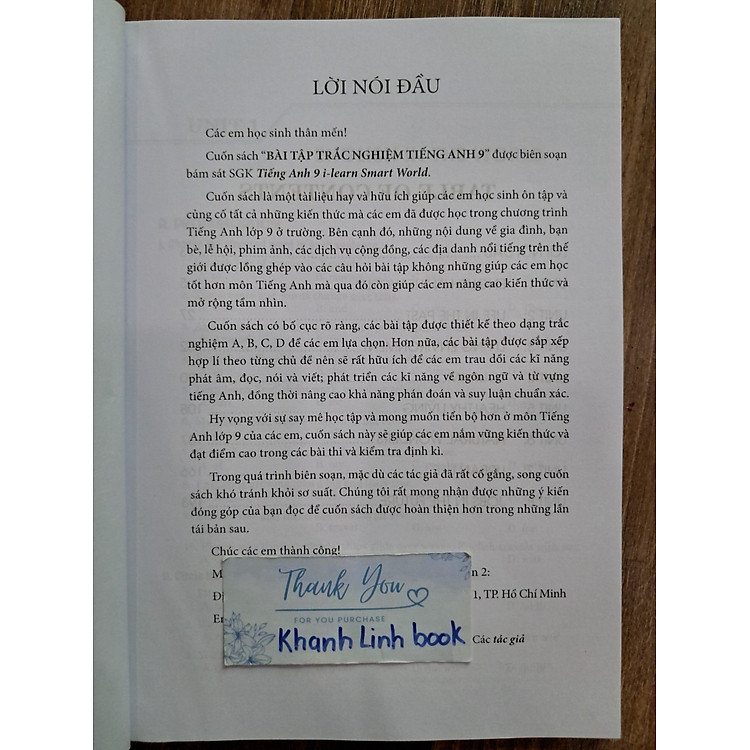 LỜI NÓI ĐẦU
Các em học sinh thân mến!
Cuốn sách “BÀI TẬP TRẮC NGHIỆM TIẾNG ANH 9” được biên soạn
bám sát SGK Tiếng Anh 9 i-learn Smart World.
Cuốn sách là một tài liệu hay và hữu ích giúp các em học sinh ôn tập và
củng cố tất cả những kiến thức mà các em đã được học trong chương trình
Tiếng Anh lớp 9 ở trường. Bên cạnh đó, những nội dung về gia đình, bạn
bè, lễ hội, phim ảnh, các dịch vụ cộng đồng, các địa danh nổi tiếng trên thế
giới được lồng ghép vào các câu hỏi bài tập không những giúp các em học
tốt hơn môn Tiếng Anh mà qua đó còn giúp các em nâng cao kiến thức và
mở rộng tầm nhìn.
Cuốn sách có bố cục rõ ràng, các bài tập được thiết kế theo dạng trắc
nghiệm A, B, C, D để các em lựa chọn. Hơn nữa, các bài tập được sắp xếp
hợp lí theo từng chủ đề nên sẽ rất hữu ích để các em trau dồi các kĩ năng
phát âm, đọc, nói và viết; phát triển các kĩ năng về ngôn ngữ và từ vựng
tiếng Anh, đồng thời nâng cao khả năng phán đoán và suy luận chuẩn xác.
Hy vọng với sự say mê học tập và mong muốn tiến bộ hơn ở môn Tiếng
Anh lớp 9 của các em, cuốn sách này sẽ giúp các em nắm vững kiến thức và
đạt điểm cao trong các bài thi và kiểm tra định kì.
Trong quá trình biên soạn, mặc dù các tác giả đã rất cố gắng, song cuốn
sách khó tránh khỏi sơ suất. Chúng tôi rất mong nhận được những ý kiến
đóng góp của bạn đọc để cuốn sách được hoàn thiện hơn trong những lần
tái bản sau.
Chúc các em thành công!
2:
1, TP. Hồ Chí Minh
Thank You
FOR YOU PURCHASE
Khanh Linh book
Các tác giả